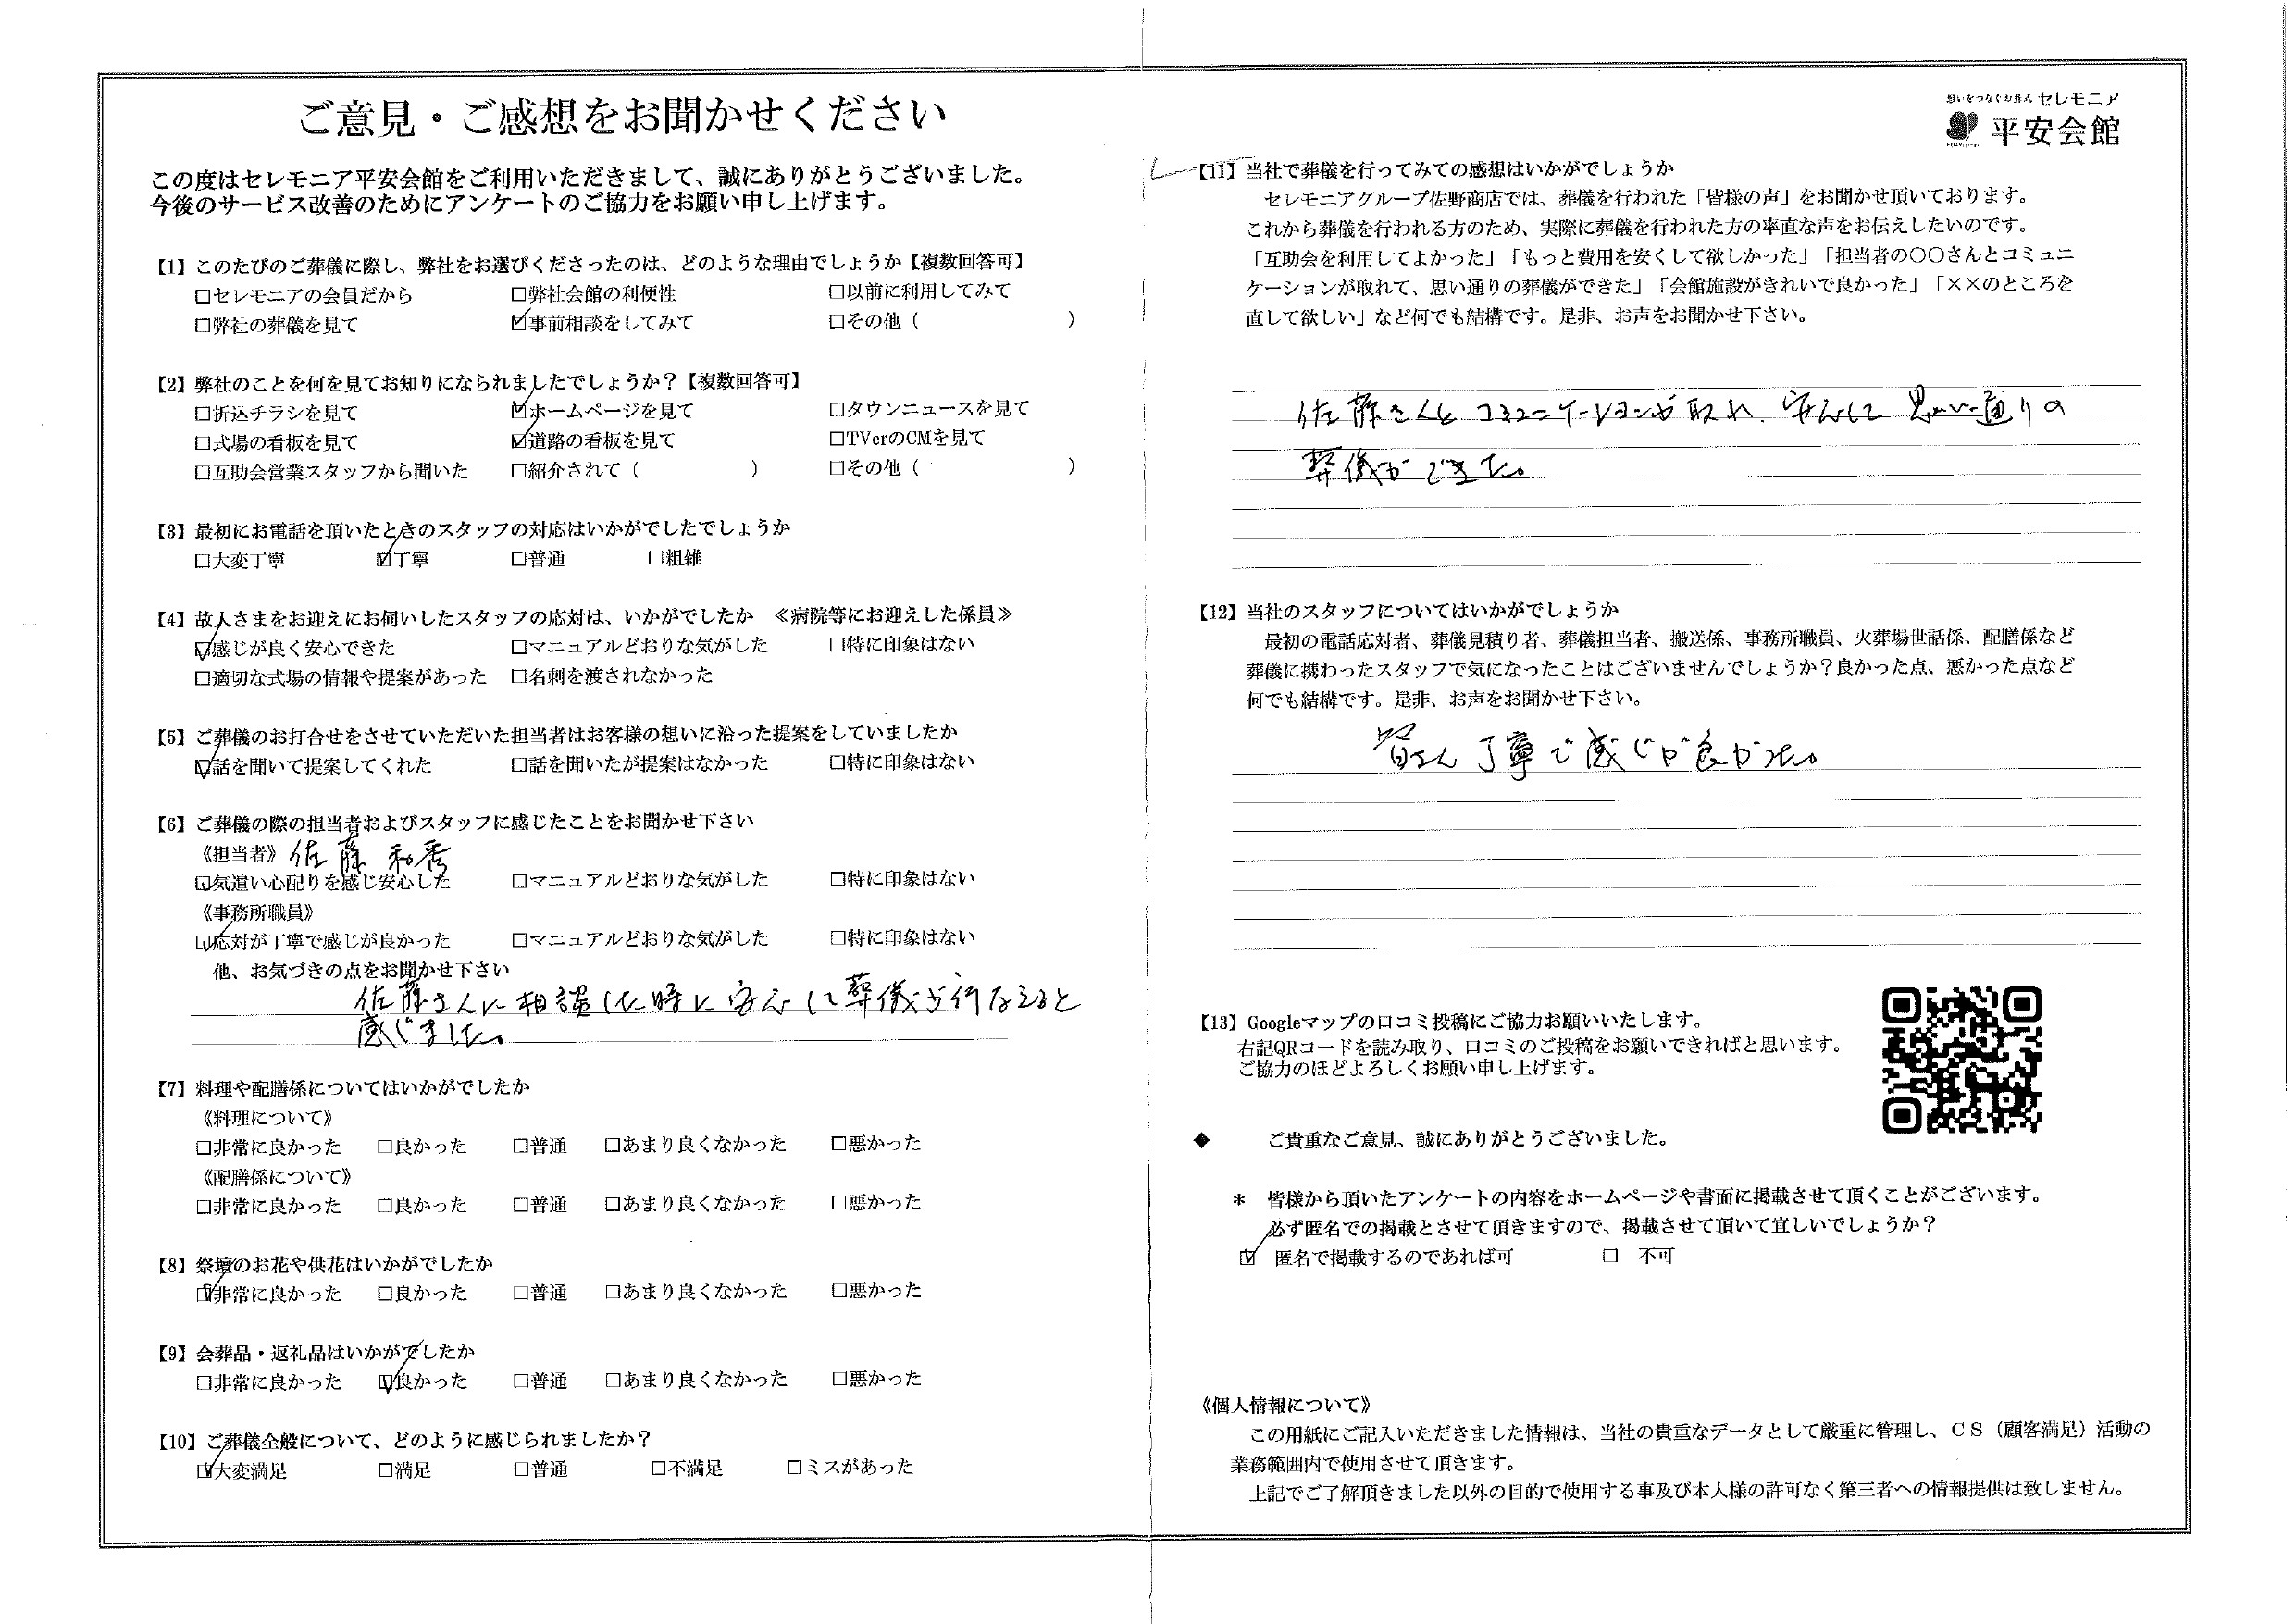 ご意見・ご感想をお聞かせください
この度はセレモニア平安会館をご利用いただきまして、誠にありがとうございました。
今後のサービス改善のためにアンケートのご協力をお願い申し上げます。
【1】このたびのご葬儀に際し、弊社をお選びくださったのは、どのような理由でしょうか【複数回答可】
□セレモニアの会員だから □弊社会館の利便性 □以前に利用してみて
□弊社の葬儀を見て ☑事前相談をしてみて □その他（ ）
【2】弊社のことを何を見てお知りになられましたでしょうか？【複数回答可】
□折込チラシを見て ☑ホームページを見て □タウンニュースを見て
□式場の看板を見て ☑道路の看板を見て □TVerのCMを見て
□互助会営業スタッフから聞いた □紹介されて（ ） □その他（ ）
【3】最初にお電話を頂いたときのスタッフの対応はいかがでしたでしょうか
□大変丁寧 ☑丁寧 □普通 □粗雑
【4】故人さまをお迎えにお伺いしたスタッフの応対は、いかがでしたか ≪病院等にお迎えした係員≫
☑感じが良く安心できた □マニュアルどおりな気がした □特に印象はない
□適切な式場の情報や提案があった □名刺を渡されなかった
【5】ご葬儀のお打合せをさせていただいた担当者はお客様の想いに沿った提案をしていましたか
☑話を聞いて提案してくれた □話を聞いたが提案はなかった □特に印象はない
【6】ご葬儀の際の担当者およびスタッフに感じたことをお聞かせ下さい
《担当者》 佐藤 和秀
☑気遣い心配りを感じ安心した □マニュアルどおりな気がした □特に印象はない
《事務所職員》
☑応対が丁寧で感じが良かった □マニュアルどおりな気がした □特に印象はない
他、お気づきの点をお聞かせ下さい
佐藤さんに相談した時に安心して葬儀が行なえると
感じました。
【7】料理や配膳係についてはいかがでしたか
《料理について》
□非常に良かった □良かった □普通 □あまり良くなかった □悪かった
《配膳係について》
□非常に良かった □良かった □普通 □あまり良くなかった □悪かった
【8】祭壇のお花や供花はいかがでしたか
☑非常に良かった □良かった □普通 □あまり良くなかった □悪かった
【9】会葬品・返礼品はいかがでしたか
□非常に良かった ☑良かった □普通 □あまり良くなかった □悪かった
【10】ご葬儀全般について、どのように感じられましたか？
☑大変満足 □満足 □普通 □不満足 □ミスがあった
想いをつなぐお葬式 セレモニア
平安会館
【11】当社で葬儀を行ってみての感想はいかがでしょうか
セレモニアグループ佐野商店では、葬儀を行われた「皆様の声」をお聞かせ頂いております。
これから葬儀を行われる方のため、実際に葬儀を行われた方の率直な声をお伝えしたいのです。
「互助会を利用してよかった」「もっと費用を安くして欲しかった」「担当者の〇〇さんとコミュニ
ケーションが取れて、思い通りの葬儀ができた」「会館施設がきれいで良かった」「××のところを
直して欲しい」など何でも結構です。是非、お声をお聞かせ下さい。
佐藤さんとコミュニケーションが取れ、安心して思い通りの
葬儀ができた。
【12】当社のスタッフについてはいかがでしょうか
最初の電話応対者、葬儀見積り者、葬儀担当者、搬送係、事務所職員、火葬場世話係、配膳係など
葬儀に携わったスタッフで気になったことはございませんでしょうか？良かった点、悪かった点など
何でも結構です。是非、お声をお聞かせ下さい。
皆さん丁寧で感じが良かった。
【13】Googleマップの口コミ投稿にご協力お願いいたします。
右記QRコードを読み取り、口コミのご投稿をお願いできればと思います。
ご協力のほどよろしくお願い申し上げます。
◆ ご貴重なご意見、誠にありがとうございました。
＊ 皆様から頂いたアンケートの内容をホームページや書面に掲載させて頂くことがございます。
必ず匿名での掲載とさせて頂きますので、掲載させて頂いて宜しいでしょうか？
☑ 匿名で掲載するのであれば可 □ 不可
《個人情報について》
この用紙にご記入いただきました情報は、当社の貴重なデータとして厳重に管理し、ＣＳ（顧客満足）活動の
業務範囲内で使用させて頂きます。
上記でご了解頂きました以外の目的で使用する事及び本人様の許可なく第三者への情報提供は致しません。